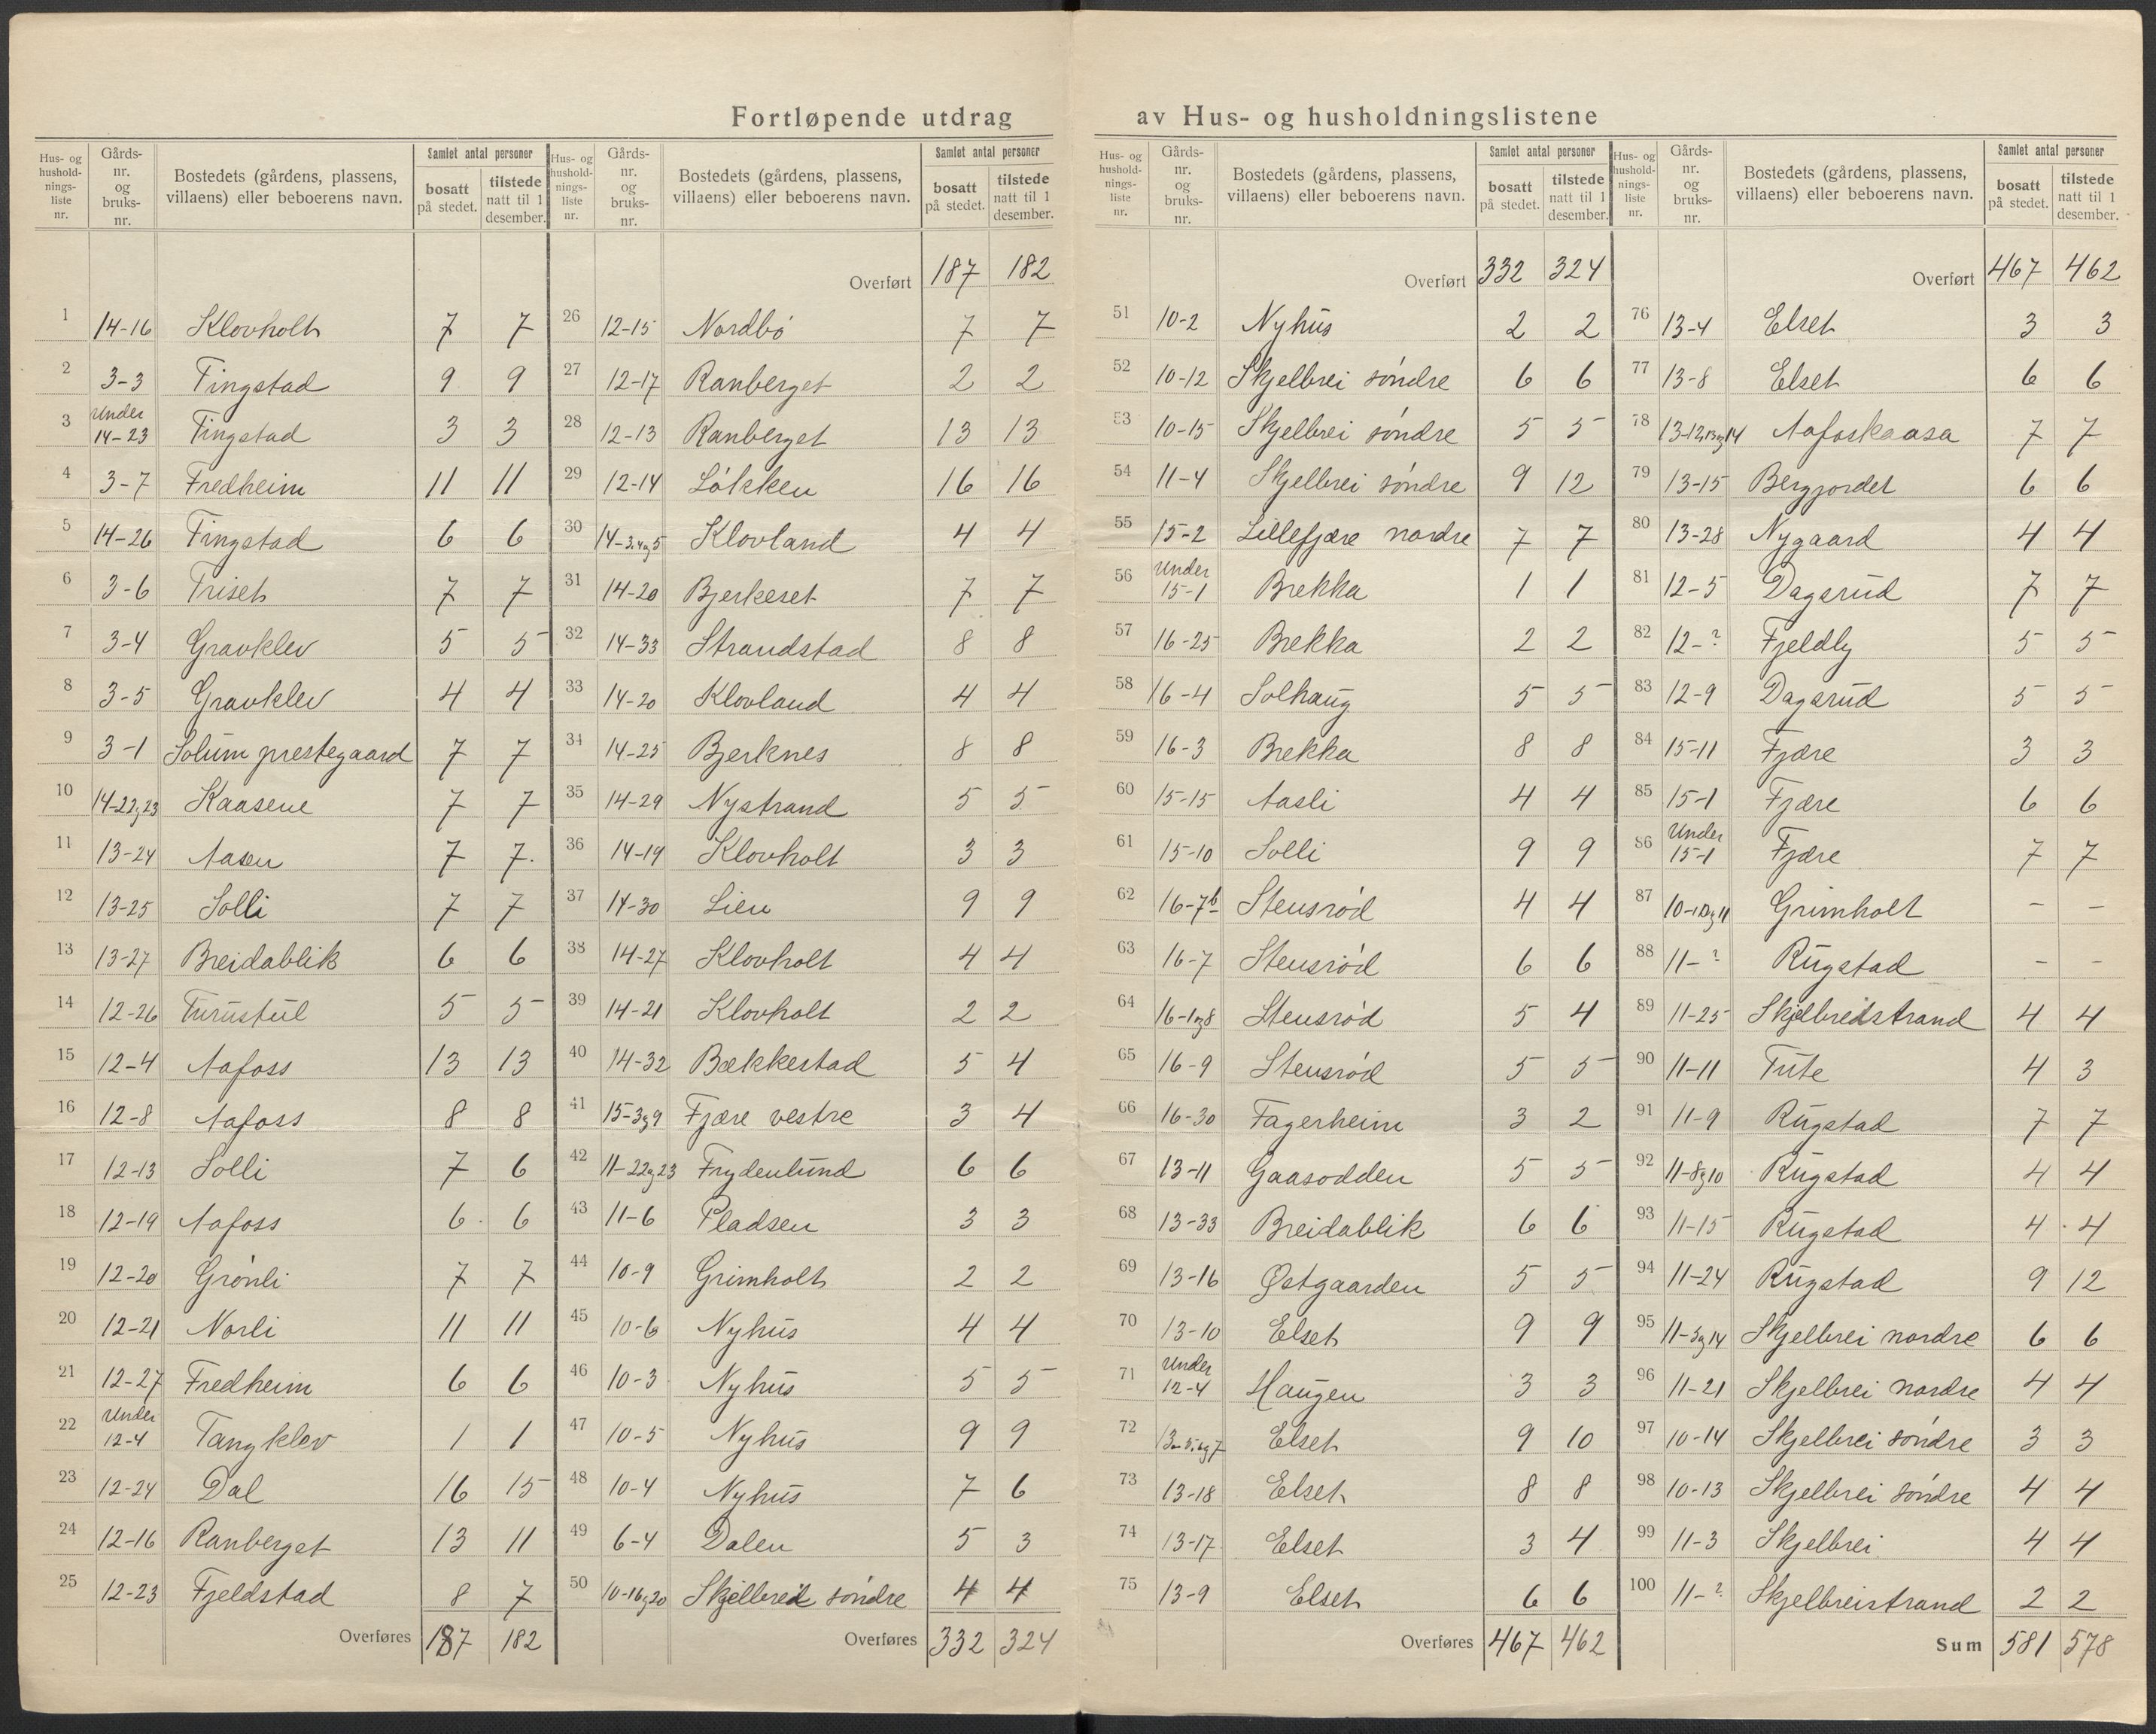 Fortløpende utdrag av Hus- og husholdningslistene
Hus- og hushold-nings-liste nr. | Gårds-nr. og bruks-nr. | Bostedets (gårdens, plassens, villaens) eller beboerens navn. | Samlet antal personer | bosatt på stedet. | tilstede natt til 1 desember.
1 14-16 Klovholt 7 7
2 3-3 Tingstad 9 9
3 Under 14-23 Tingstad 3 3
4 3-7 Fredheim 11 11
5 14-26 Tingstad 6 6
6 3-6 Triset 7 7
7 3-4 Gravklev 5 5
8 3-5 Gravklev 4 4
9 3-1 Solum prestegaard 7 7
10 14-22og23 Kaasene 7 7
11 13-24 Aasen 7 7.
12 13-25 Solli 7 7
13 13-27 Breidablik 6 6
14 12-26 Turustul 5 5
15 12-4 Aafoss 13 13
16 12-8 Aafoss 8 8
17 12-13 Solli 7 6
18 12-19 Aafoss 6 6
19 12-20 Grönli 7 7
20 12-21 Norli 11 11
21 12-27 Fredheim 6 6
22 Under 12-4 Tangklev 1 1
23 12-24 Dal 16 15
24 12-16 Ranberget 13 11
25 12-23 Fjeldstad 8 7
Overføres 187 182
Hus- og hushold-nings-liste nr. | Gårds-nr. og bruks-nr. | Bostedets (gårdens, plassens, villaens) eller beboerens navn. | Samlet antal personer | bosatt på stedet. | tilstede natt til 1 desember.
Overført 187 182
26 12-15 Nordbö 7 7
27 12-17 Ranberget 2 2
28 12-13 Ranberget 13 13
29 12-14 Lökken 16 16
30 14-3.4og5 Klovland 4 4
31 14-20 Bjerkeset 7 7
32 14-33 Strandstad 8 8
33 14-20 Klovland 4 4
34 14-25 Bjerknes 8 8
35 14-29 Nystrand 5 5
36 14-19 Klovholt 3 3
37 14-30 Lien 9 9
38 14-27 Klovholt 4 4
39 14-21 Klovholt 2 2
40 14-32 Bækkestad 5 4
41 15-3og9 Fjære vestre 3 4
42 11-22og23 Frydenlund 6 6
43 11-6 Pladsen 3 3
44 10-9 Grimholt 2 2
45 10-6 Nyhus 4 4
46 10-3 Nyhus 5 5
47 10-5 Nyhus 9 9
48 10-4 Nyhus 7 6
49 6-4 Dalen 5 3
50 10-16og20 Skjelbreid söndre 4 4
Overføres 332 324
Hus- og hushold-nings-liste nr. | Gårds-nr. og bruks-nr. | Bostedets (gårdens, plassens, villaens) eller beboerens navn. | Samlet antal personer | bosatt på stedet. | tilstede natt til 1 desember.
Overført 332 324
51 10-2 Nyhus 2 2
52 10-12 Skjelbrei söndre 6 6
53 10-15 Skjelbrei söndre 5 5
54 11-4 Skjelbrei söndre 9 12
55 15-2 Lillefjære nordre 7 7
56 Under 15-1 Brekka 1 1
57 16-25 Brekka 2 2
58 16-4 Solhaug 5 5
59 16-3 Brekka 8 8
60 15-15 Aasli 4 4
61 15-10 Solli 9 9
62 16-7b Stensröd 4 4
63 16-7 Stensröd 6 6
64 16-1og8 Stensröd 5 4
65 16-9 Stensröd 5 5
66 16-30 Fagerheim 3 2
67 13-11 Gaasodden 5 5
68 13-33 Breidablik 6 6
69 13-16 Østgaarden 5 5
70 13-10 Elset 9 9
71 Under 12-4 Haugen 3 3
72 13-5.og7 Elset 9 10
73 13-18 Elset 8 8
74 13-17 Elset 3 4
75 13-9 Elset 6 6
Overføres 467 462
Hus- og hushold-nings-liste nr. | Gårds-nr. og bruks-nr. | Bostedets (gårdens, plassens, villaens) eller beboerens navn. | Samlet antal personer | bosatt på stedet. | tilstede natt til 1 desember.
Overført 467 462
76 13-4 Elset 3 3
77 13-8 Elset 6 6
78 13-12,13og14 Aafoskaasa 7 7
79 13-15 Bergjordet 6 6
80 13-28 Nygaard 4 4
81 12-5 Dagsrud 7 7
82 12-? Fjeldly 5 5
83 12-9 Dagsrud 5 5
84 15-11 Fjære 3 3
85 15-1 Fjære 6 6
86 Under 15-1 Fjære 7 7
87 10-10og11 Grimholt - -
88 11-? Rugstad - -
89 11-25 Skjelbreidstrand 4 4
90 11-11 Tute 4 3
91 11-9 Rugstad 7 7
92 11-8og10 Rugstad 4 4
93 11-15 Rugstad 4 4
94 11-24 Rugstad 9 12
95 11-3og14 Skjelbrei nordre 6 6
96 11-21 Skjelbrei nordre 4 4
97 10-14 Skjelbrei söndre 3 3
98 10-13 Skjelbrei söndre 4 4
99 11-3 Skjelbrei 4 4
100 11-? Skjelbreistrand 2 2
Sum 581 578